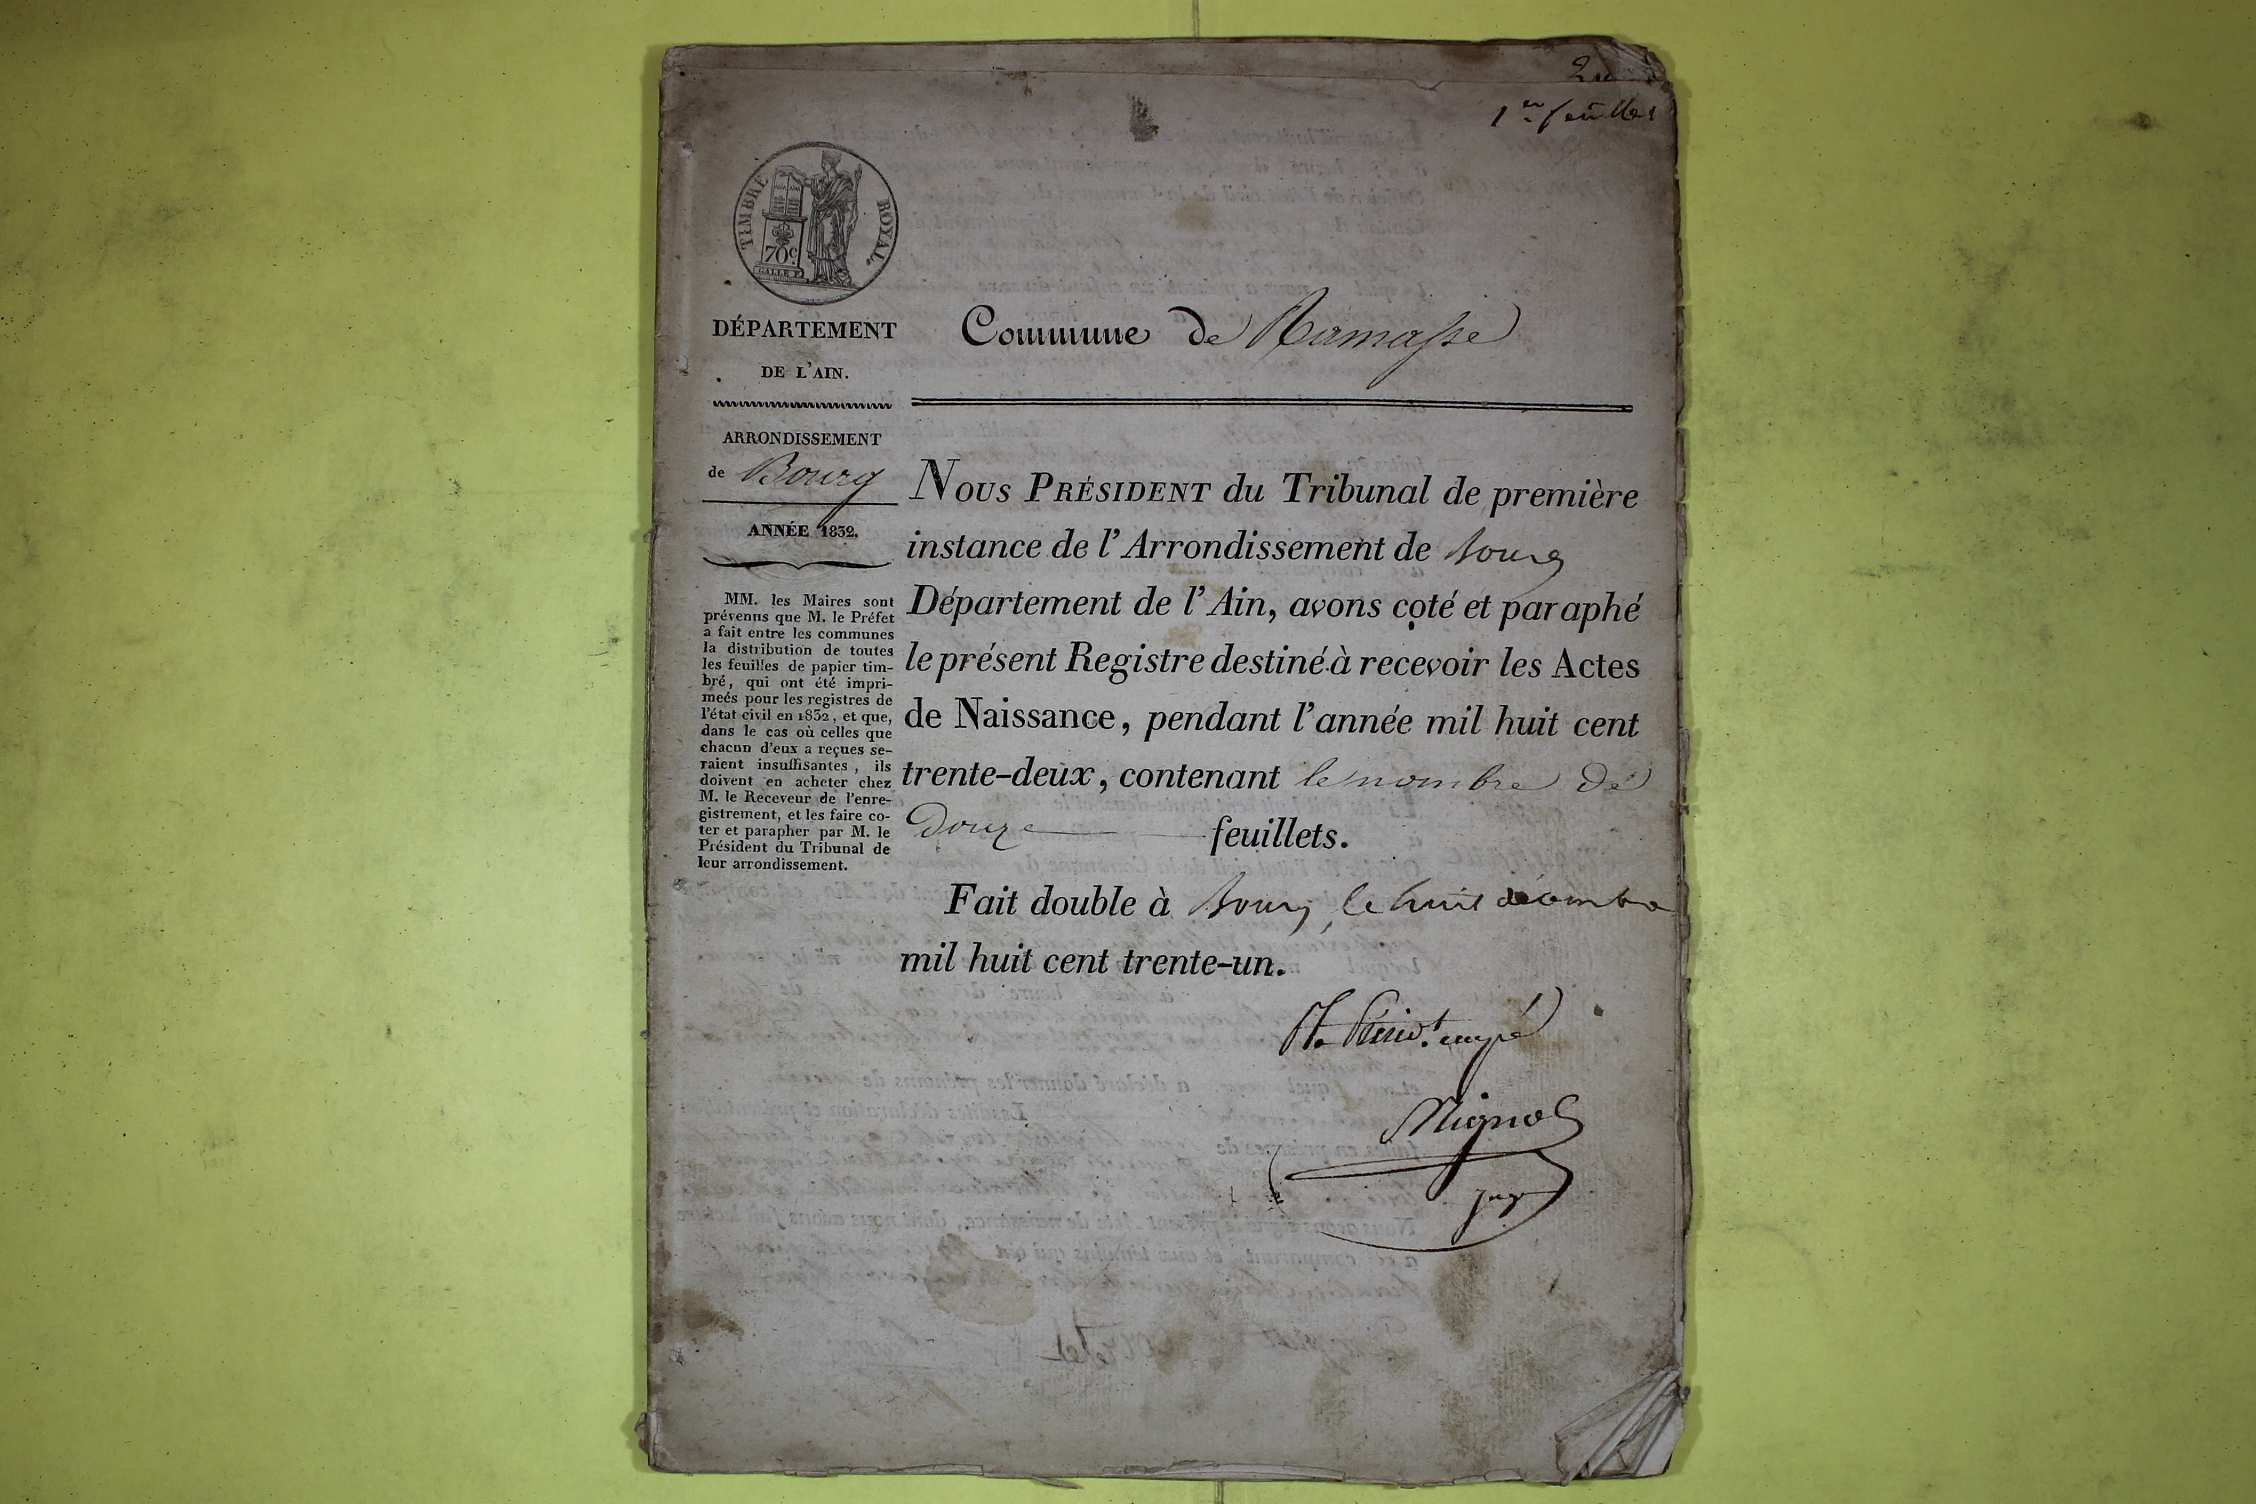 1er feuillet
TIMBRE ROYAL.
70 c.
GALLE F.
DÉPARTEMENT
DE L'AIN.
Commune de Ramasse
ARRONDISSEMENT
de Bourg
ANNÉE 1832.
MM. les Maires sont
prévenus que M. le Préfet
a fait entre les communes
la distribution de toutes
les feuilles de papier tim-
bré, qui ont été impri-
meés pour les registres de
l'état civil en 1832, et que,
dans le cas où celles que
chacun d'eux a reçues se-
raient insuffisantes, ils
doivent en acheter chez
M. le Receveur de l'enre-
gistrement, et les faire co-
ter et parapher par M. le
Président du Tribunal de
leur arrondissement.
NOUS PRÉSIDENT du Tribunal de première
instance de l'Arrondissement de Bourg
Département de l'Ain, avons coté et paraphé
le présent Registre destiné à recevoir les Actes
de Naissance, pendant l'année mil huit cent
trente-deux, contenant le nombre de
Douze feuillets.
Fait double à Bourg, le huit décembre
mil huit cent trente-un.
empé
juge